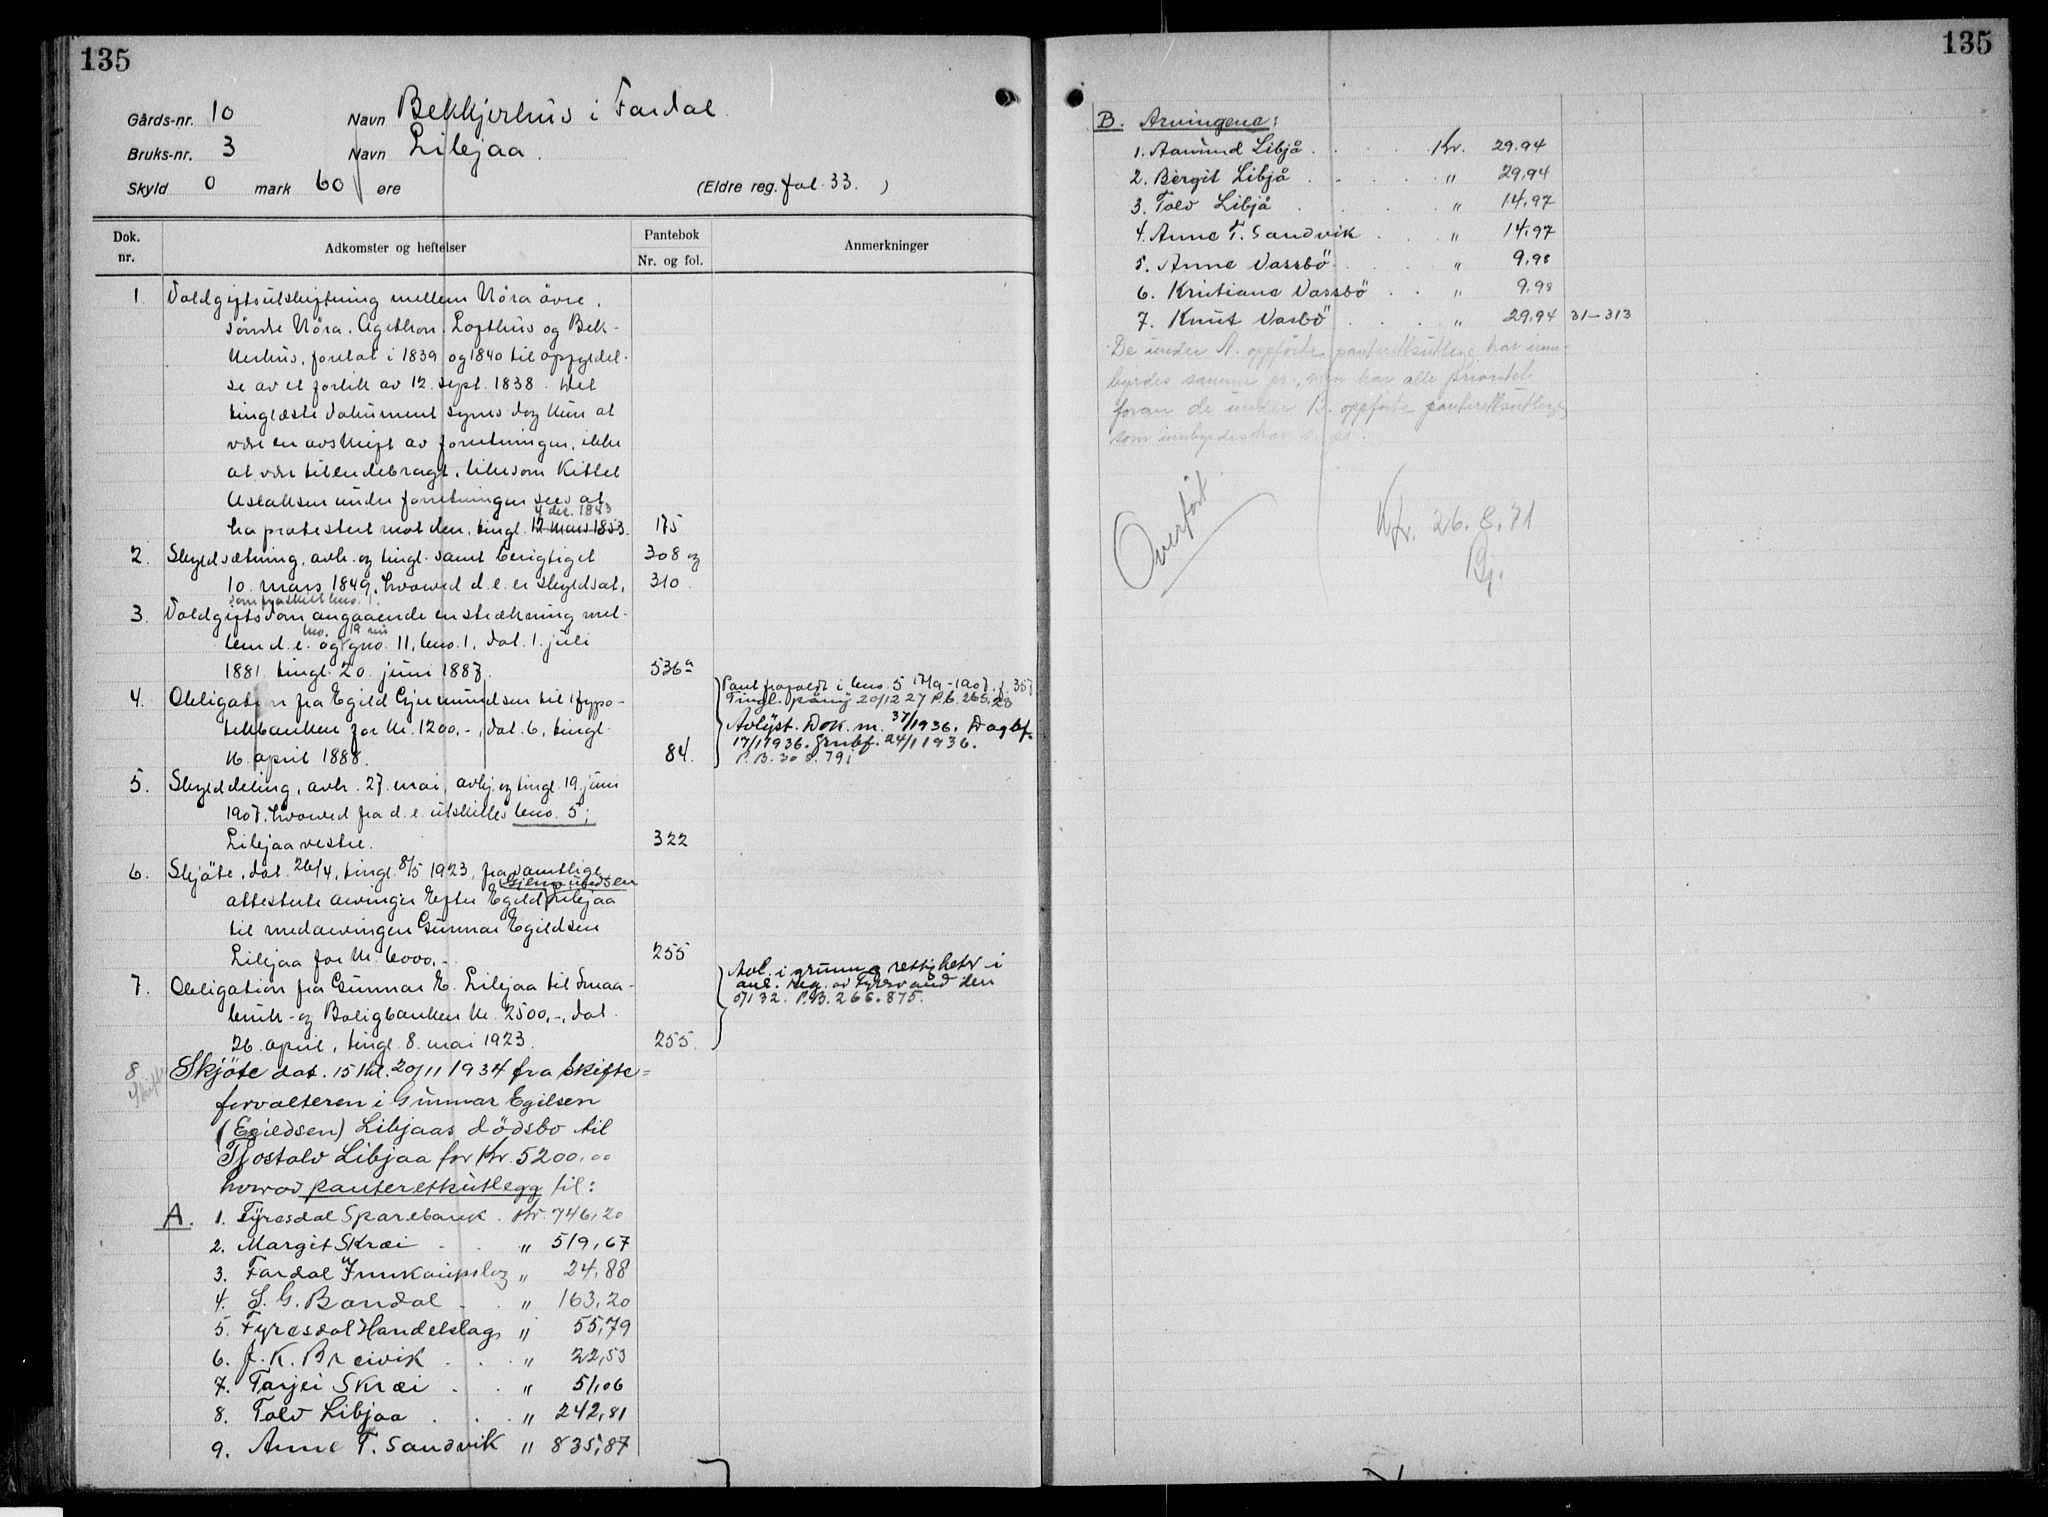 135
Gårds-nr. 10 Navn Bekkjerhus i Fardal
Bruks-nr. 3 Navn Libjaa
Skyld 0 mark 60 øre (Eldre reg. fol. 33. )
Dok. nr. Adkomster og heftelser Pantebok Nr. og fol. Anmerkninger
1. Voldgiftsutskiftning mellem Nöra övre,
söndre Nöra, Lofthus og Bek-
kerhus, foretat i 1839 og 1840 til opfyldel-
se av et forlik av 12. sept. 1838. Det
tinglæste dokument synes dog kun at
være en avskrift av forretningen, ikke
at være tilendebragt, likesom Kittel
Aslaksen under forretningen sees at
4 dec. 1843
ha protestert mot den, tingl. 12 mars 1853. 175
2. Skyldsætning, avh. og tingl. samt berigtiget 308 og
10. mars 1849, hvorved d. e. er skyldsat, 310.
som fraskilt bno. 1.
3. Voldgiftsdom angaaende en strækning mel-
bno. 19 nu
lem d. e. og gno. 11, bno. 1, dat. 1. juli
1881, tingl. 20. juni 1887. 536a
4. Obligation fra Egild Gjermundsen til Hypo-
tekbanken for kr. 1200,-, dat. 6, tingl.
16. april 1888. 84.
Pant frafaldt i bno. 5 17/9-1907. f. 357
Tingl. påny 20/12 27 P.b. 26 s. 28
Avlyst. Dok. nr. 37/1936. Dagbf.
17/1 1936. Grubf. 24/1 1936.
P.B. 30 s. 791
5. Skylddeling, avh. 27. mai, avhj. og tingl. 19. juni
1907, hvorved fra d. e. utskilles bno. 5,
Libjaa vestre. 322
6. Skjöte, dat. 26/4, tingl. 8/5 1923, fra samtlige
Gjermundsen
attesterte arvinger efter Egild Libjaa
til medarvingen Gunnar Egildsen
Libjaa for kr. 6000,- 255
7. Obligation fra Gunnar E. Libjaa til Smaa-
bruk- og Boligbanken kr. 2500,-, dat.
26. april, tingl. 8. mai 1923. 255.
Avl. i grunn & rettighetv i
anl. reg. av Fyrvand den
P.B. 26 s. 875.
8. Skjöte dat. 15 tkl. 20/11 1934 fra skifte-
Skifte
forvalteren i Gunnar Egilsen
(Egildsen) Libjaas dödsbo til
Tjostolv Libjaa for Kr. 5200,00
hvorav panterettsutlegg til:
A. 1. Fyresdal Sparebank. Kr. 746,20
2. Margit Skrei . . „ 519,67
3. Fardal Innkaupslag „ 24,88
4. S. G. Bondal . . „ 163,20
5. Fyresdal Handelslag „ 55,79
6. J. K. Breivik . . . „ 22,53
7. Tarjei Skrei . . „ 51,06
8. Tolv Libjaa . . . „ 242,81
9. Anne T. Sandvik „ 835,87
135
B. Arvingene:
1. Aamund Libjå . . . . Kr. 29,94
2. Bergit Libjå . . . . . „ 29,94
3. Tolv Libjå . . . . „ 14,97
4. Anne T. Sandvik . . „ 14,97
5. Anne Vassbö . . . „ 9,98
6. Kristiane Vassbö . . „ 9,98
7. Knut Vasbö . . . „ 29,94 31-313
De under A. oppförte panterettsutlegg har inn-
byrdes samme pr., men har alle prioritet
foran de under B. oppförte panterettsutlegg
som innbyrdes har s. pr.
Overfört
Kfr. 26.8.71
Bj.